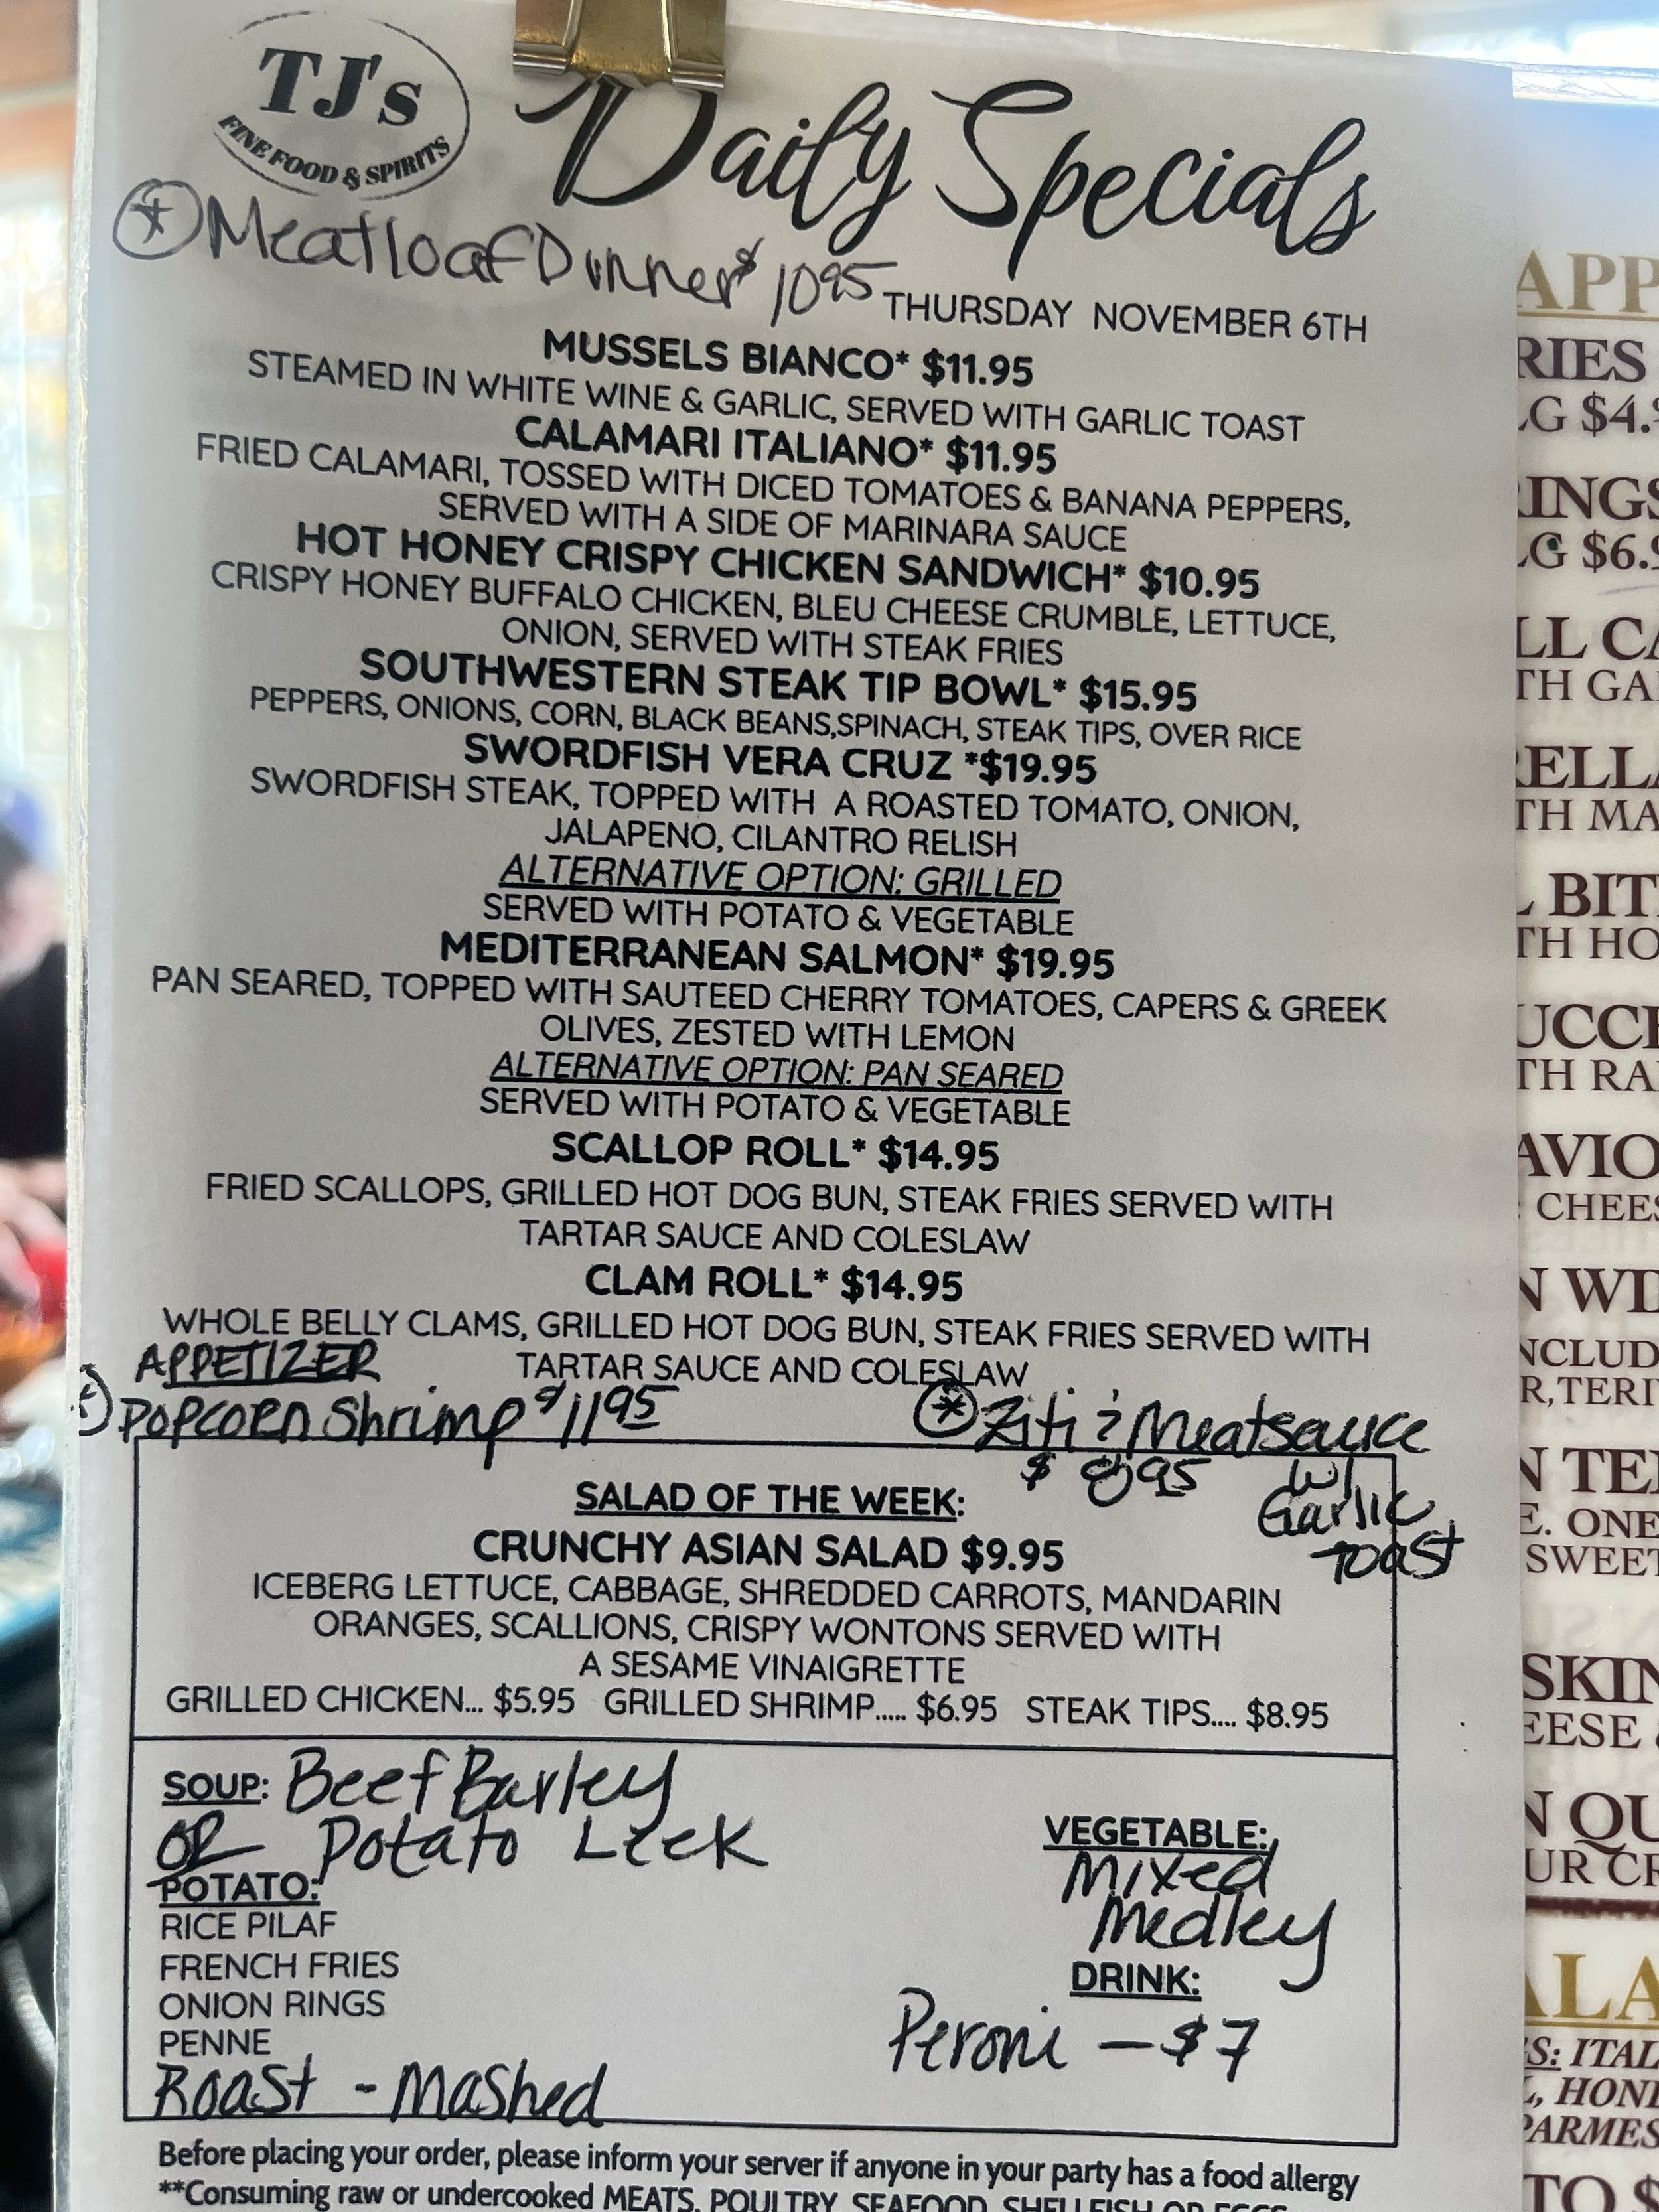 TJ's
FINE FOOD & SPIRITS
Daily Specials
Meatloaf Dinner $10.95
THURSDAY NOVEMBER 6TH
MUSSELS BIANCO* $11.95
STEAMED IN WHITE WINE & GARLIC, SERVED WITH GARLIC TOAST
CALAMARI ITALIANO* $11.95
FRIED CALAMARI, TOSSED WITH DICED TOMATOES & BANANA PEPPERS,
SERVED WITH A SIDE OF MARINARA SAUCE
HOT HONEY CRISPY CHICKEN SANDWICH* $10.95
CRISPY HONEY BUFFALO CHICKEN, BLEU CHEESE CRUMBLE, LETTUCE,
ONION, SERVED WITH STEAK FRIES
SOUTHWESTERN STEAK TIP BOWL* $15.95
PEPPERS, ONIONS, CORN, BLACK BEANS,SPINACH, STEAK TIPS, OVER RICE
SWORDFISH VERA CRUZ *$19.95
SWORDFISH STEAK, TOPPED WITH A ROASTED TOMATO, ONION,
JALAPENO, CILANTRO RELISH
ALTERNATIVE OPTION: GRILLED
SERVED WITH POTATO & VEGETABLE
MEDITERRANEAN SALMON* $19.95
PAN SEARED, TOPPED WITH SAUTEED CHERRY TOMATOES, CAPERS & GREEK
OLIVES, ZESTED WITH LEMON
ALTERNATIVE OPTION: PAN SEARED
SERVED WITH POTATO & VEGETABLE
SCALLOP ROLL* $14.95
FRIED SCALLOPS, GRILLED HOT DOG BUN, STEAK FRIES SERVED WITH
TARTAR SAUCE AND COLESLAW
CLAM ROLL* $14.95
WHOLE BELLY CLAMS, GRILLED HOT DOG BUN, STEAK FRIES SERVED WITH
TARTAR SAUCE AND COLESLAW
APPETIZER
Popcorn Shrimp $11.95
Ziti & Meatsauce
$ 8.95 w/
Garlic
toast
SALAD OF THE WEEK:
CRUNCHY ASIAN SALAD $9.95
ICEBERG LETTUCE, CABBAGE, SHREDDED CARROTS, MANDARIN
ORANGES, SCALLIONS, CRISPY WONTONS SERVED WITH
A SESAME VINAIGRETTE
GRILLED CHICKEN... $5.95 GRILLED SHRIMP..... $6.95 STEAK TIPS.... $8.95
SOUP: Beef Barley
OR Potato Leek
POTATO:
RICE PILAF
FRENCH FRIES
ONION RINGS
PENNE
Roast - Mashed
VEGETABLE:
Mixed
Medley
DRINK:
Peroni - $7
Before placing your order, please inform your server if anyone in your party has a food allergy
**Consuming raw or undercooked MEATS, POULTRY, SEAFOOD, SHELLFISH OR EGGS